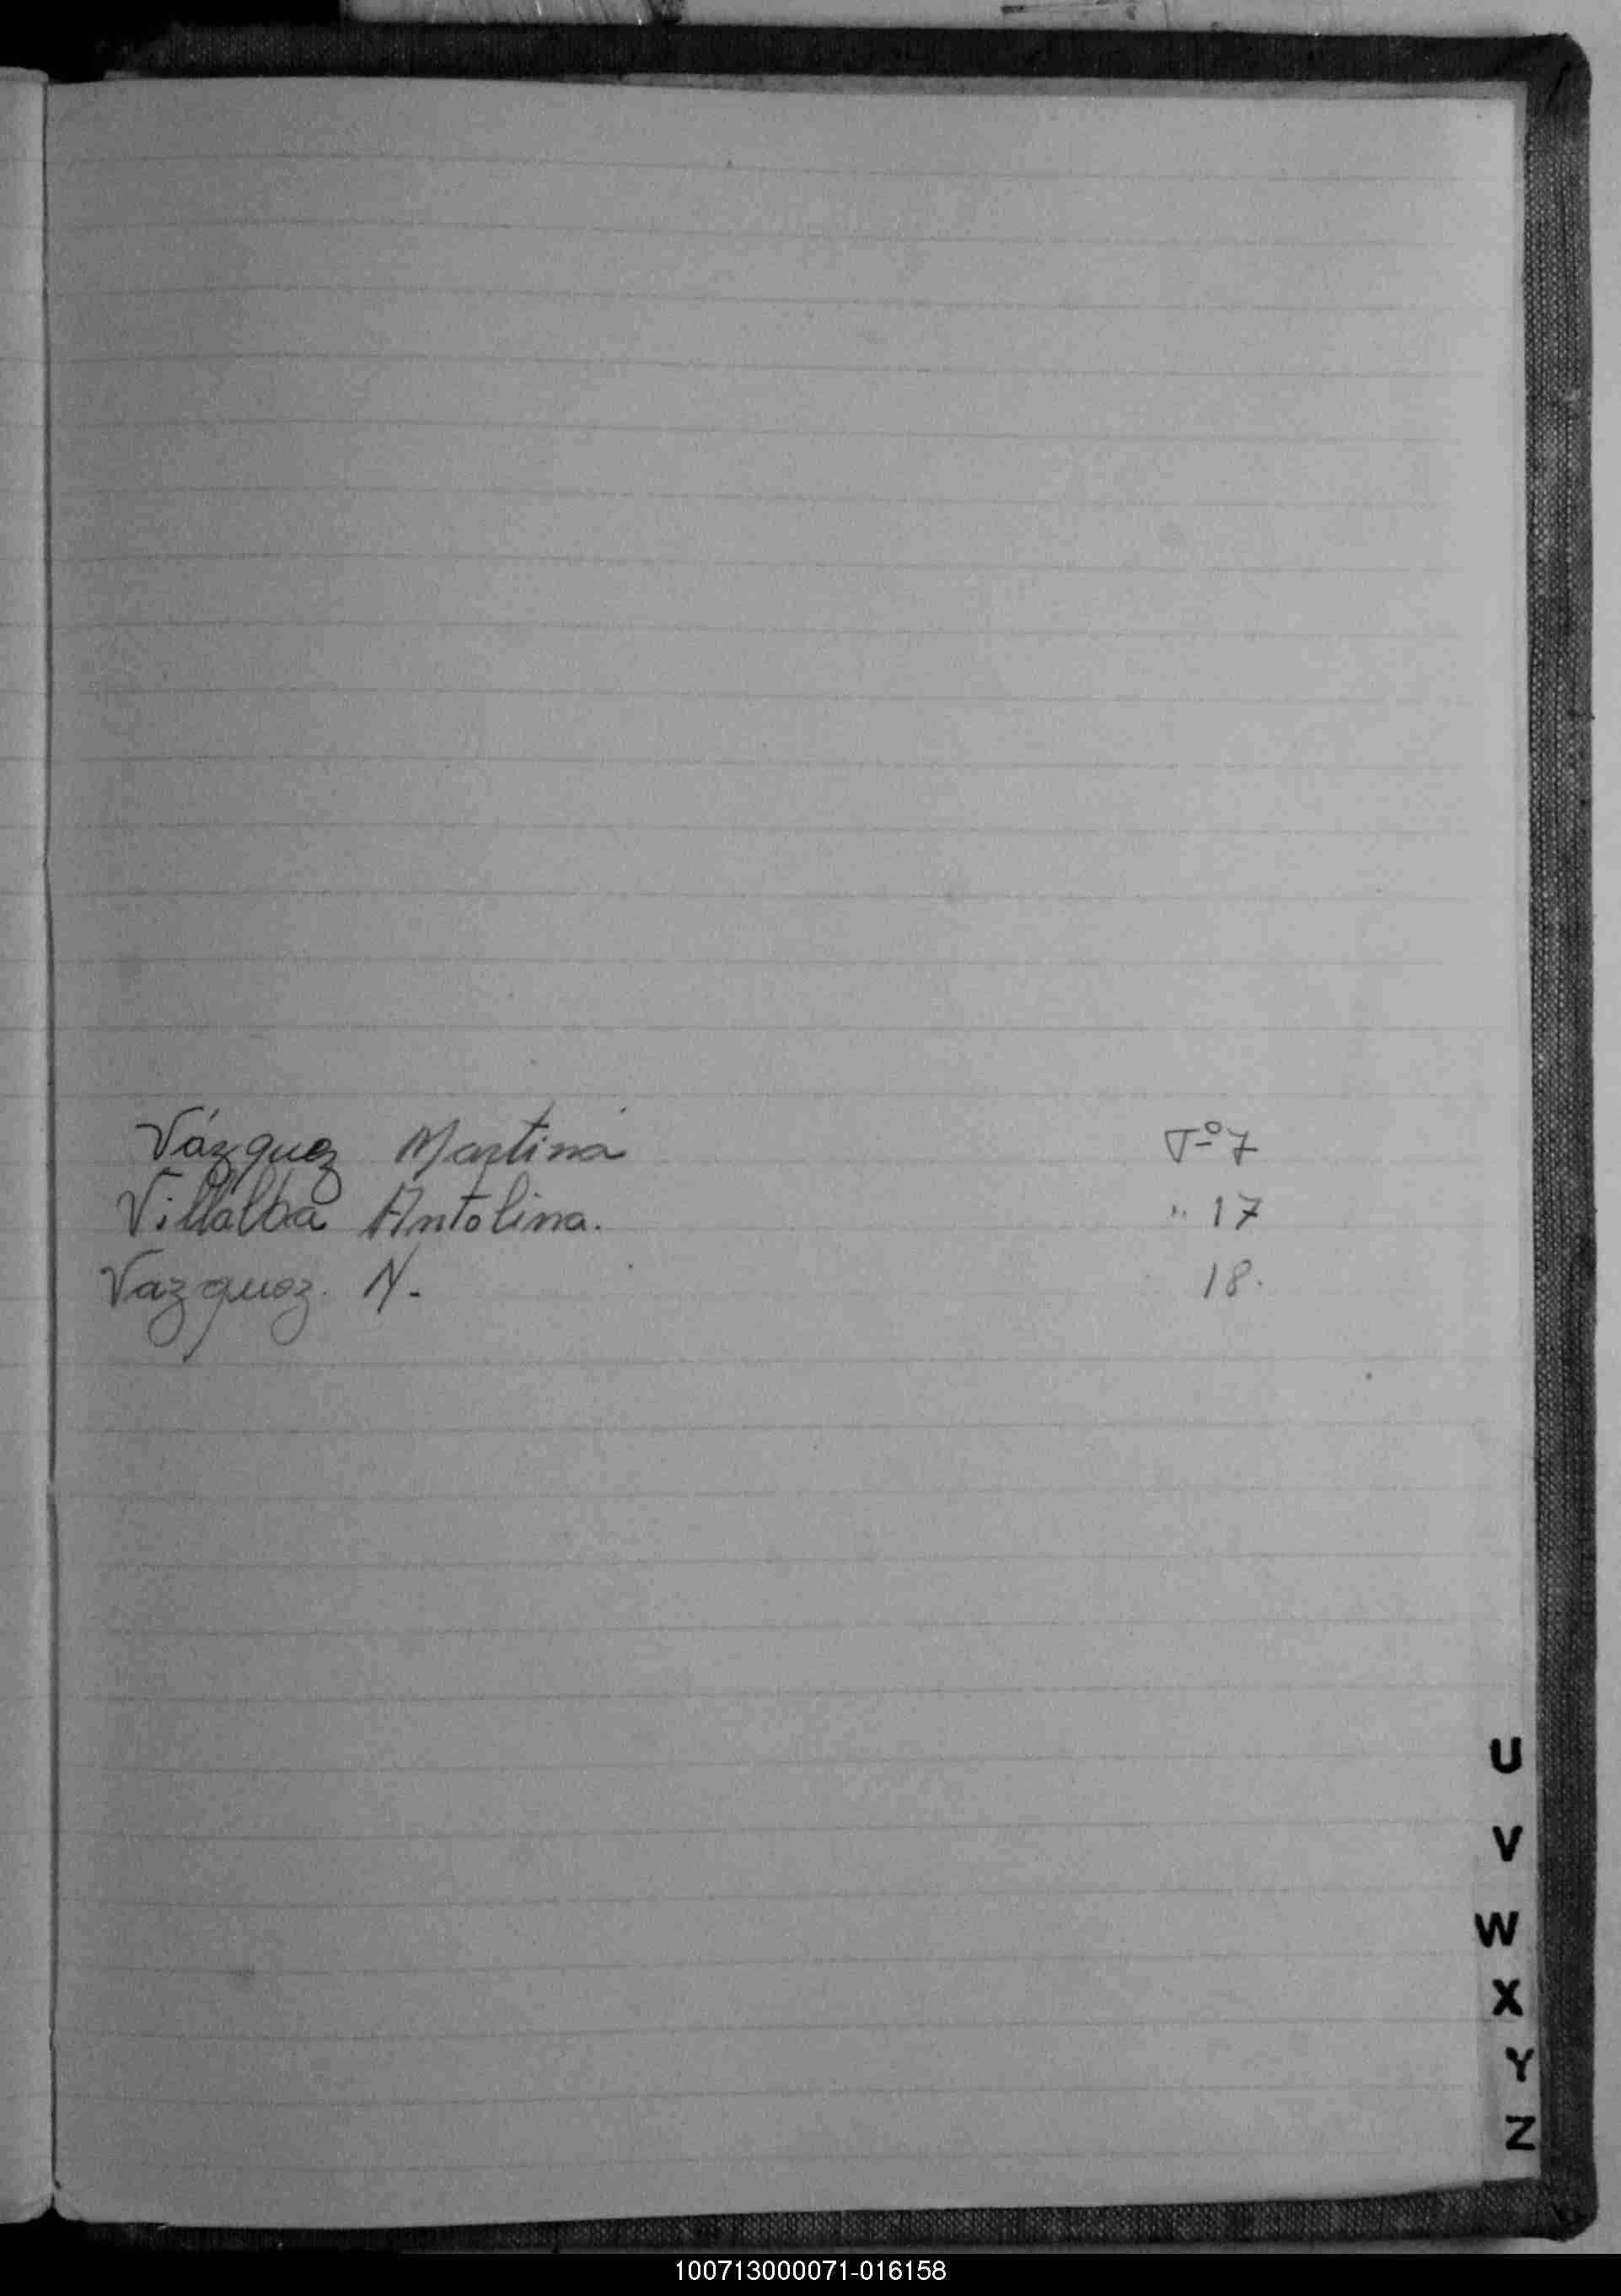 Vázquez Martina Fº 7
Villalba Antolina. " 17
Vazquez. N. 18.
U
V
W
X
Y
Z
100713000071-016158